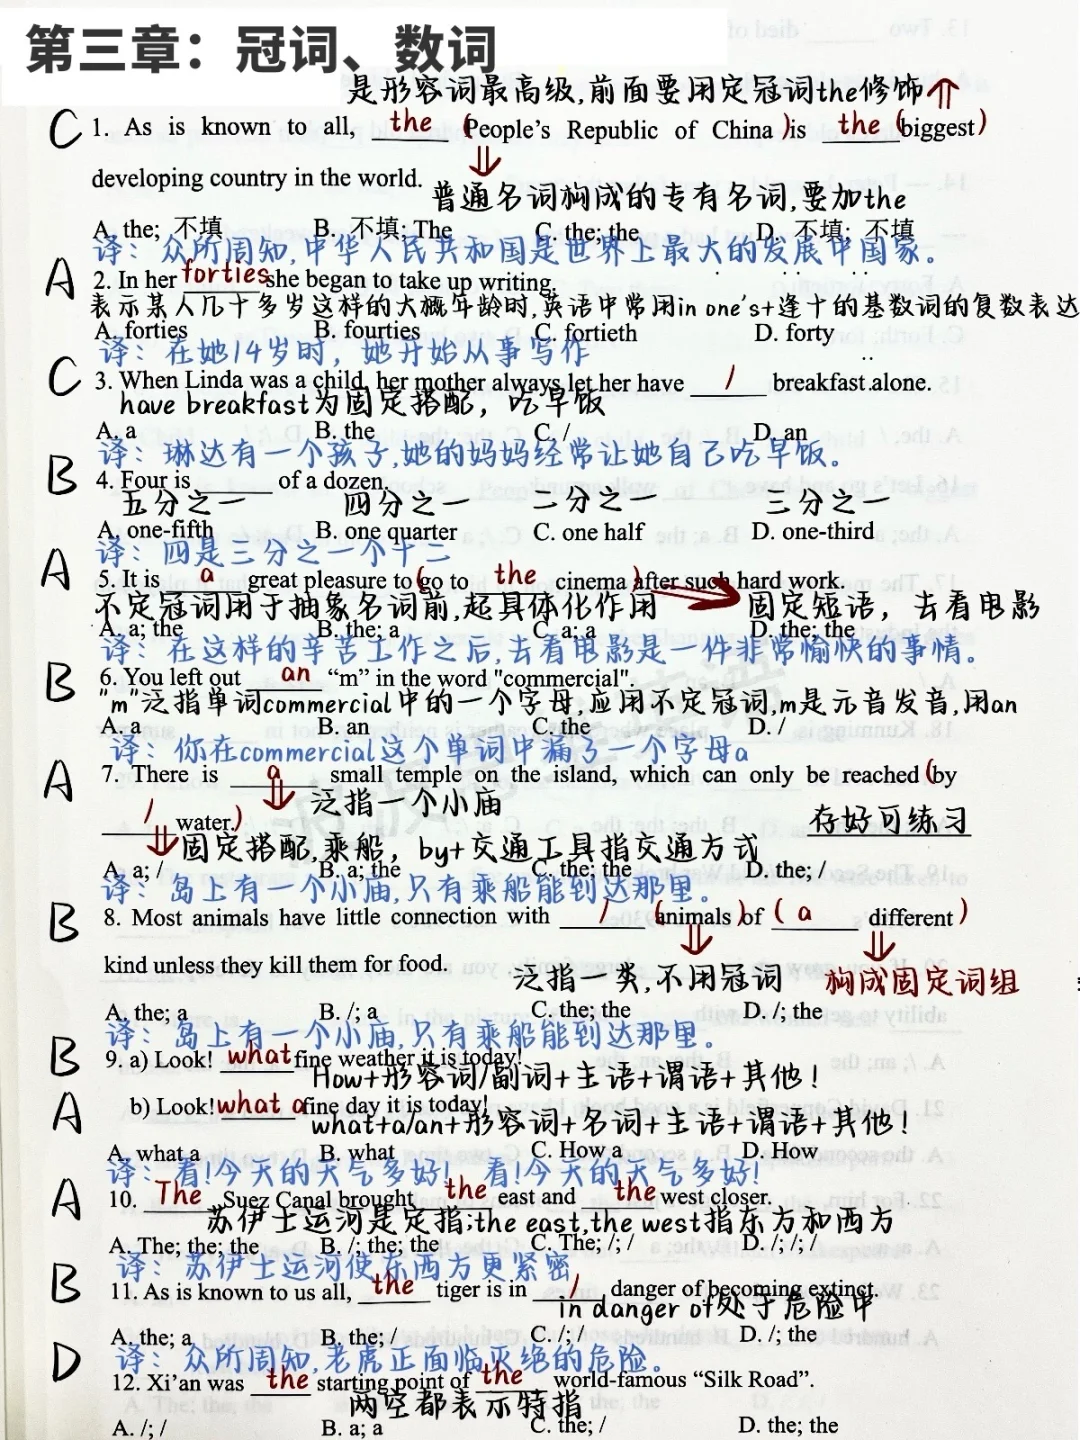 第三章：冠词、数词
是形容词最高级,前面要用定冠词the修饰
C 1. As is known to all, the (People's Republic of China) is the (biggest)
developing country in the world.
普通名词构成的专有名词,要加the
A. the; 不填 B. 不填; The C. the; the D. 不填; 不填
译：众所周知,中华人民共和国是世界上最大的发展中国家。
A 2. In her forties she began to take up writing.
表示某人几十多岁这样的大概年龄时,英语中常用in one's+逢十的基数词的复数表达
A. forties B. fourties C. fortieth D. forty
译：在她14岁时，她开始从事写作
C 3. When Linda was a child, her mother always let her have / breakfast alone.
have breakfast为固定搭配，吃早饭
A. a B. the C. / D. an
译：琳达有一个孩子,她的妈妈经常让她自己吃早饭。
B 4. Four is ______ of a dozen.
五分之一 四分之一 二分之一 三分之一
A. one-fifth B. one quarter C. one half D. one-third
译：四是三分之一个十二
A 5. It is a great pleasure to (go to the cinema) after such hard work.
不定冠词用于抽象名词前,起具体化作用 固定短语，去看电影
A. a; the B. the; a C. a; a D. the; the
译：在这样的辛苦工作之后,去看电影是一件非常愉快的事情。
B 6. You left out an “m” in the word "commercial".
"m"泛指单词commercial中的一个字母,应用不定冠词,m是元音发音,用an
A. a B. an C. the D. /
译：你在commercial这个单词中漏了一个字母a
A 7. There is a small temple on the island, which can only be reached (by
泛指一个小庙
/ water.)
存好可练习
固定搭配,乘船，by+交通工具指交通方式
A. a; / B. a; the C. the; the D. the; /
译：岛上有一个小庙,只有乘船能到达那里。
B 8. Most animals have little connection with / (animals) of (a different)
kind unless they kill them for food.
泛指一类,不用冠词 构成固定词组
A. the; a B. /; a C. the; the D. /; the
译：岛上有一个小庙,只有乘船能到达那里。
B 9. a) Look! what fine weather it is today!
How+形容词/副词+主语+谓语+其他！
A b) Look! what a fine day it is today!
what+a/an+形容词+名词+主语+谓语+其他！
A. what a B. what C. How a D. How
译：看!今天的天气多好! 看!今天的天气多好!
A 10. The Suez Canal brought the east and the west closer.
苏伊士运河是定指;the east,the west指东方和西方
A. The; the; the B. /; the; the C. The; /; / D. /; /; /
译：苏伊士运河使东西方更紧密
B 11. As is known to us all, the tiger is in / danger of becoming extinct.
in danger of处于危险中
A. the; a B. the; / C. /; / D. /; the
译：众所周知,老虎正面临灭绝的危险。
D 12. Xi'an was the starting point of the world-famous “Silk Road”.
两空都表示特指
A. /; / B. a; a C. the; / D. the; the